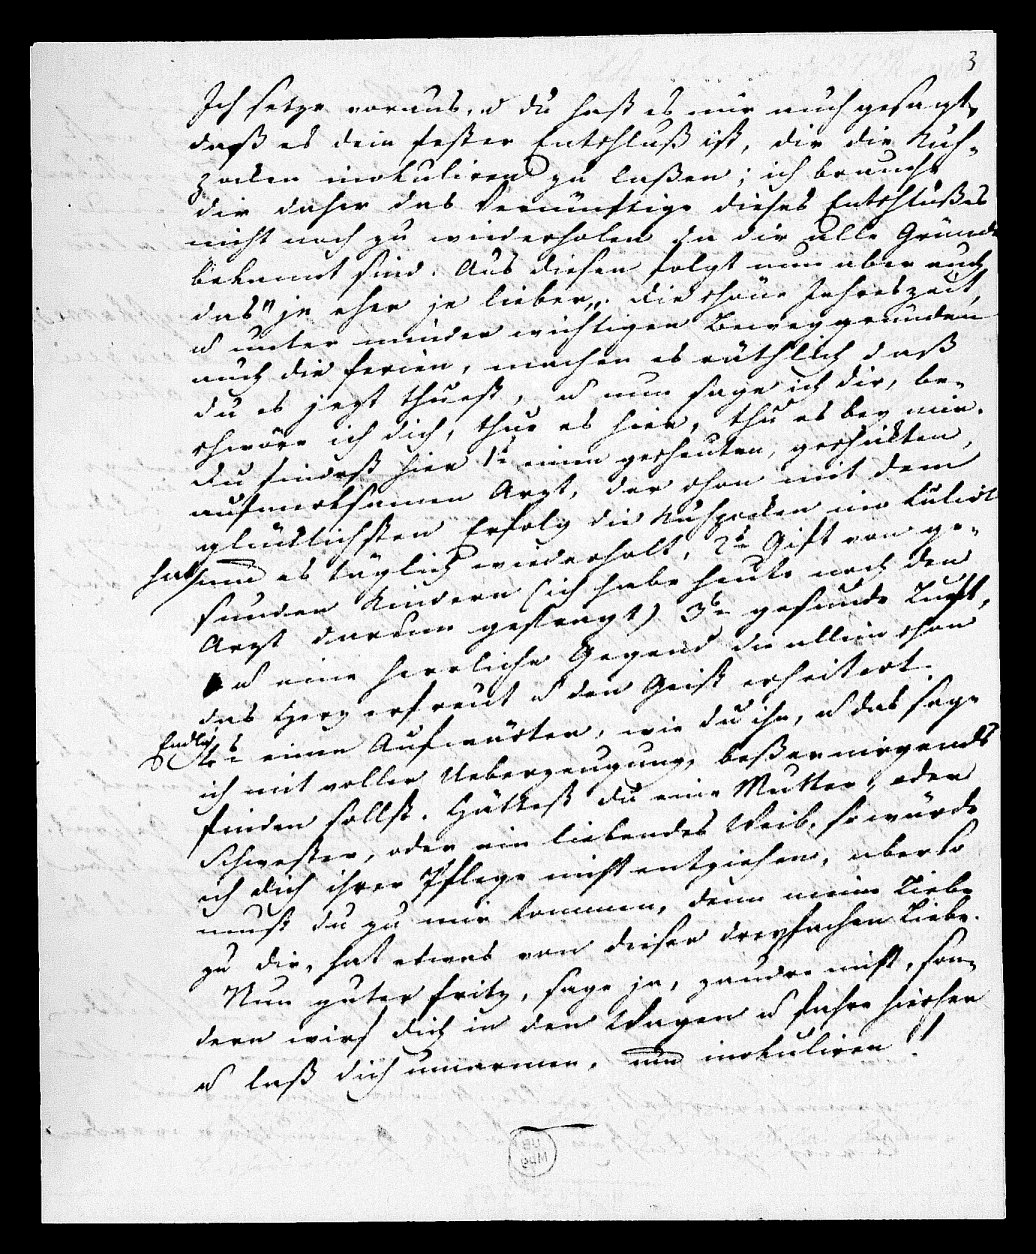 3
Ich setze voraus, u du hast es mir auch gesagt,
daß es dein fester Entschluß ist, dir die Kuh-
pocken inokuliren zu laßen; ich brauche
dir daher das Vernünftige dieses Entschlußes
nicht noch zu wiederholen da dir alle Gründe
bekannt sind. Aus diesen folgt nun aber auch
das „je eher je lieber„. Die schöne Jahreszeit,
u unter minder wichtigen Beweggründen
auch die Ferien, machen es räthlich daß
du es jezt thuest, u nun sage ich dir, be-
schwöre ich dich, thue es hier, thu es bey mir.
Du findest hier 1s einen gescheuten, geschikten,
aufmerksamen Arzt, der schon mit dem
glücklichsten Erfolg die Kuhpocken inokulirt
hat und es täglich wiederholt, 2s Gift von ge-
sunden Kindern (ich habe heute noch den
Arzt darum gefragt) 3s gesunde Luft,
u eine herrliche Gegend die allein schon
das Herz erfreut u den Geist erheitert.
Endlich 4s einen Aufwärter, wie du ihn, u das sage
ich mit voller Ueberzeugung, beßer nirgends
finden sollst. Hättest du eine Mutter, oder
Schwester, oder ein liebendes Weib, so würde
ich dich ihrer Pflege nicht entziehen, aber so
must du zu mir kommen, denn meine Liebe
zu dir, hat etwas von dieser dreyfachen Liebe.
Nun guter Fritz, sage ja, zaudre nicht, son-
dern wirf dich in den Wagen u fahre hierher
u laß dich umarmen, und inokuliren!!
UB
Mbg